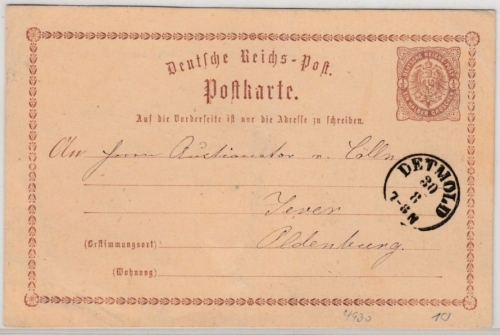 Deutsche Reichs-Post.
Postkarte.
Auf die Vorderseite ist nur die Adresse zu schreiben.
An Herrn Auctionator v. Cölln
DETMOLD
30
8
7-8 N
Jever
(Bestimmungsort) Oldenburg.
(Wohnung)
4930 10